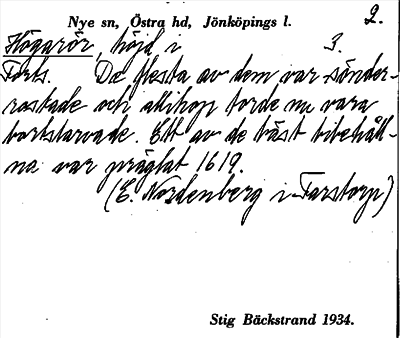 Nye sn, Östra hd, Jönköpings l. 2.
Högarör, höjd i 3.
Forts. De flesta av dem var sönder-
rostade och allihop torde nu vara
bortslarvade. Ett av de bäst bibehåll-
na var präglat 1619.
(E. Nordenberg i Farstorp)
Stig Bäckstrand 1934.